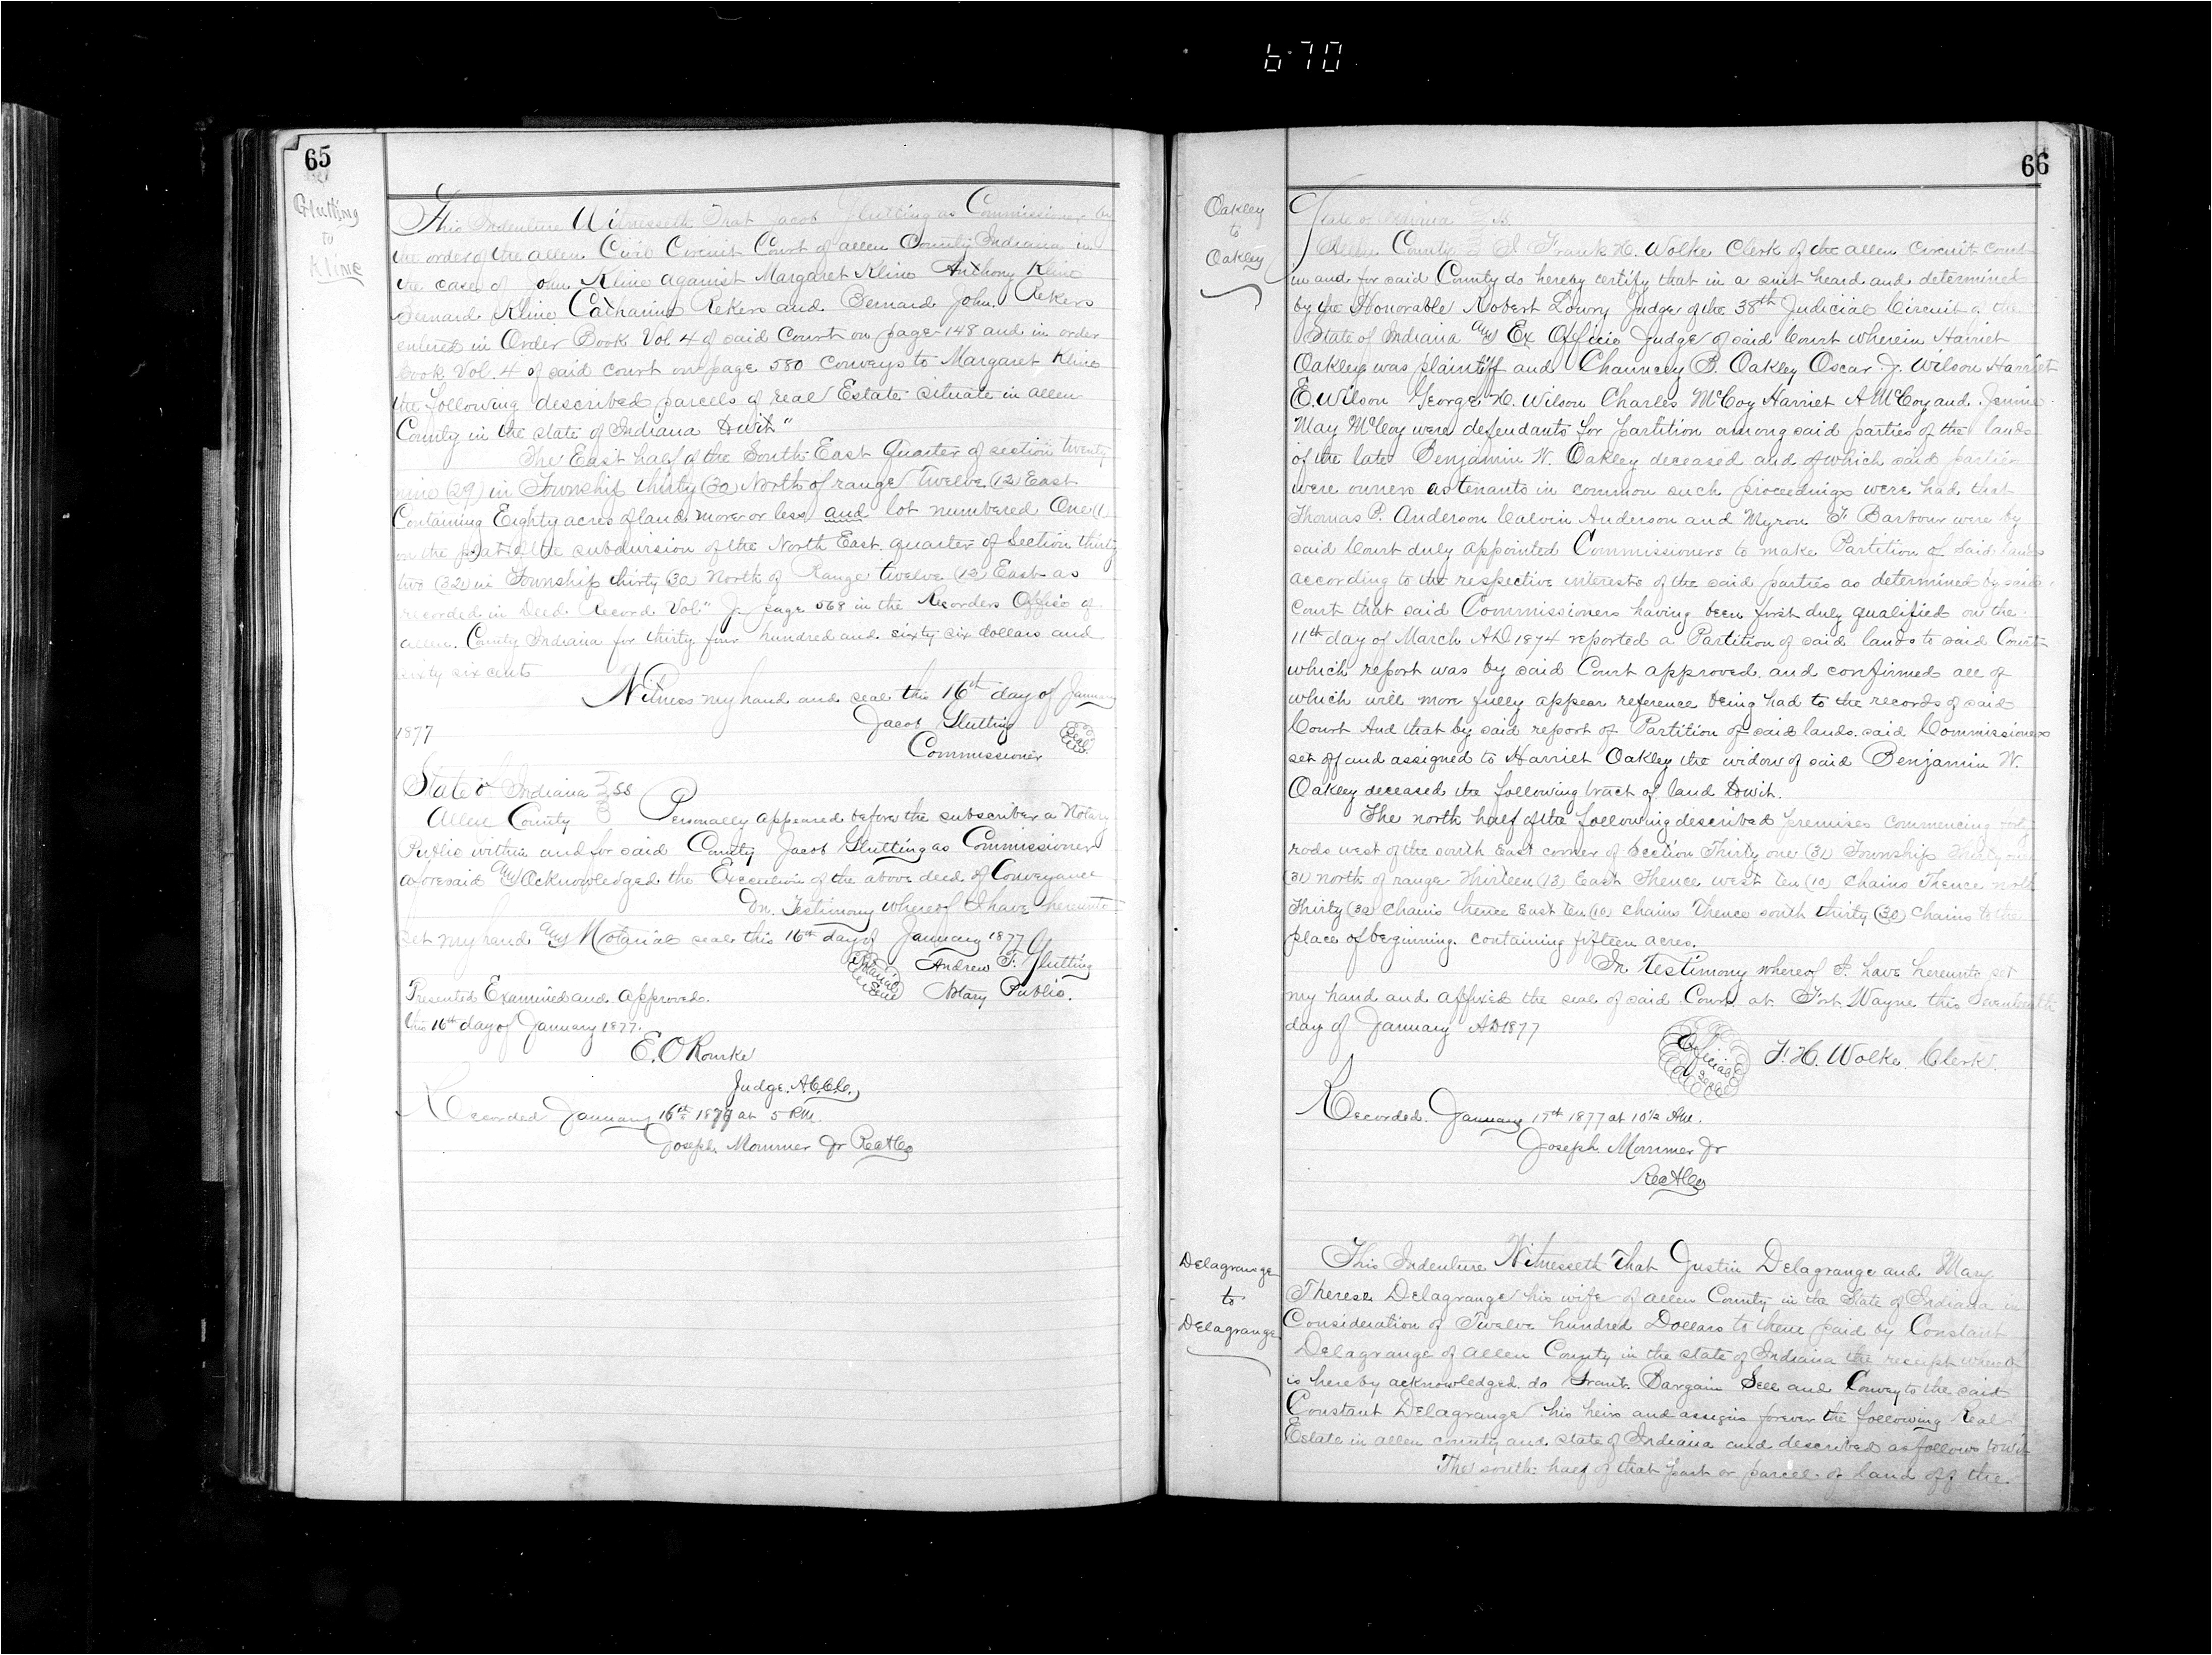 6-70
65
Glutting
to
Kline
This Indenture Witnesseth That Jacob Glutting as Commissioner by
the order of the Allen Civil Circuit Court of Allen County Indiana in
the case of John Kline against Margaret Kline Anthony Kline
Bernard Kline Catharine Rekers and Bernard John Rekers
entered in Order Book Vol 4 of said Court on page 148 and in order
book Vol. 4 of said court on page 580 conveys to Margaret Kline
the following described parcels of real Estate situate in allen
County in the state of Indiana towit"
The East half of the South East Quarter of section twenty
nine (29) in Township thirty (30) North of range Twelve (12) East
Containing Eighty acres of land more or less and lot numbered One (1
on the plat of the subdivision of the North East quarter of Section thirty
two (32) in Township thirty (30) North of Range twelve (12) East as
recorded in Deed Record Vol" J. page 568 in the Recorders Office of
allen County Indiana for thirty four hundred and sixty six dollars and
sixty six cents
Witness my hand and seal this 16th day of January
1877
Jacob Glutting
Seal
Commissioner
State of Indiana } SS
Allen County
Personally appeared before the subscriber a Notary
Public within and for said County Jacob Glutting as Commissioner
aforesaid and Acknowledged the Execution of the above deed of Conveyance
In Testimony whereof I have hereunto
set my hand and Notarial seal this 16th day of January 1877
Andrew F. Glutting
Notarial Seal
Notary Public.
Presented Examined and approved.
this 16th day of January 1877.
E. O Rourke
Judge. A.C.C.C.
Recorded January 16th 1877 at 5 P.M.
Joseph Mommer Jr RecACo
66
Oakley
to
Oakley
State of Indiana } SS.
Allen County } I Frank H. Wolke Clerk of the allen Circuit Court
in and for said County do hereby certify that in a suit heard and determined
by the Honorable Robert Lowry Judge of the 38th Judicial Circuit of the
State of Indiana and Ex Officio Judge of said Court wherein Harriet
Oakley was plaintiff and Chauncey B. Oakley Oscar J. Wilson Harriet
E. Wilson George H. Wilson Charles McCoy Harriet A McCoy and Jennie
May McCoy were defendants for partition among said parties of the lands
of the late Benjamin W. Oakley deceased and of which said parties
were owners as tenants in common such proceedings were had that
Thomas P. Anderson Calvin Anderson and Myron F Barbour were by
said Court duly appointed Commissioners to make Partition of said lands
according to the respective interests of the said parties as determined by said
Court that said Commissioners having been first duly qualified on the
11th day of March AD 1874 reported a Partition of said lands to said Court
which report was by said Court approved and confirmed all of
which will more fully appear reference being had to the records of said
Court And that by said report of Partition of said lands said Commissioners
set off and assigned to Harriet Oakley the widow of said Benjamin W.
Oakley deceased the following tract of land towit.
The north half of the following described premises commencing forty
rods west of the south East corner of Section Thirty one (31) Township Thirty one
(31) north of range Thirteen (13) East Thence west ten (10) chains Thence north
Thirty (30) Chains thence East ten (10) chains Thence south thirty (30) chains to the
place of beginning containing fifteen acres.
In Testimony whereof I have hereunto set
my hand and affixed the seal of said Court at Fort Wayne this Seventeenth
day of January AD 1877
Official Seal
F. H. Wolke Clerk
Recorded January 17th 1877 at 10 1/2 AM.
Joseph Mommer Jr
RecACo
Delagrange
to
Delagrange
This Indenture Witnesseth That Justin Delagrange and Mary
Therese Delagrange his wife of allen County in the State of Indiana in
Consideration of Twelve hundred Dollars to them paid by Constant
Delagrange of allen County in the state of Indiana the receipt whereof
is hereby acknowledged do Grant Bargain Sell and Convey to the said
Constant Delagrange his heirs and assigns forever the following Real
Estate in allen county and state of Indiana and described as follows towit
The south half of that part or parcel of land off the